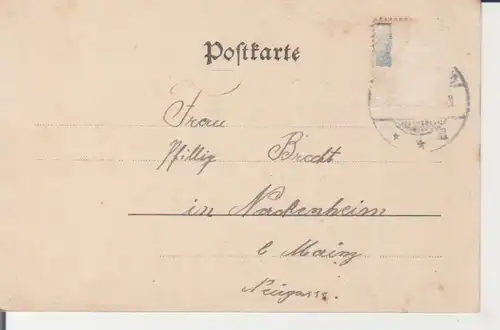 Postkarte
Frau
Phillip Brecht
in Nackenheim
b Mainz
Neugasse.